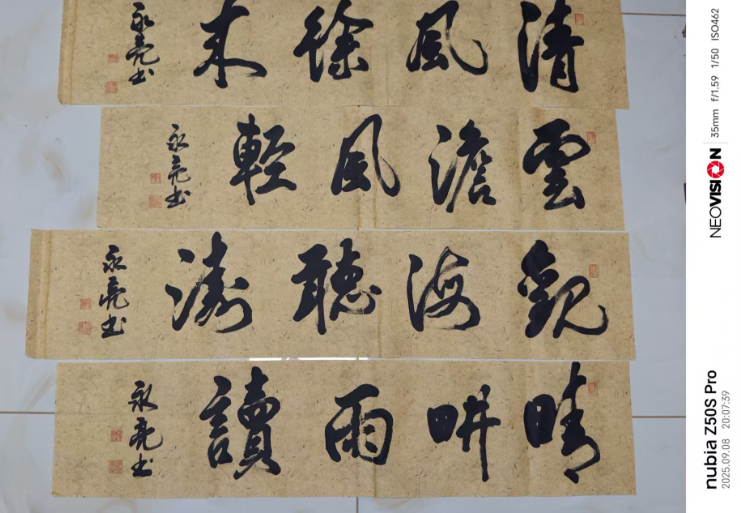 清風徐来
永亮书
雲澹風輕
永亮书
觀海聽濤
永亮书
晴畊雨讀
永亮书
nubia Z50S Pro
2025.09.08 20:07:39
NEOVISION 35mm f/1.59 1/50 ISO462